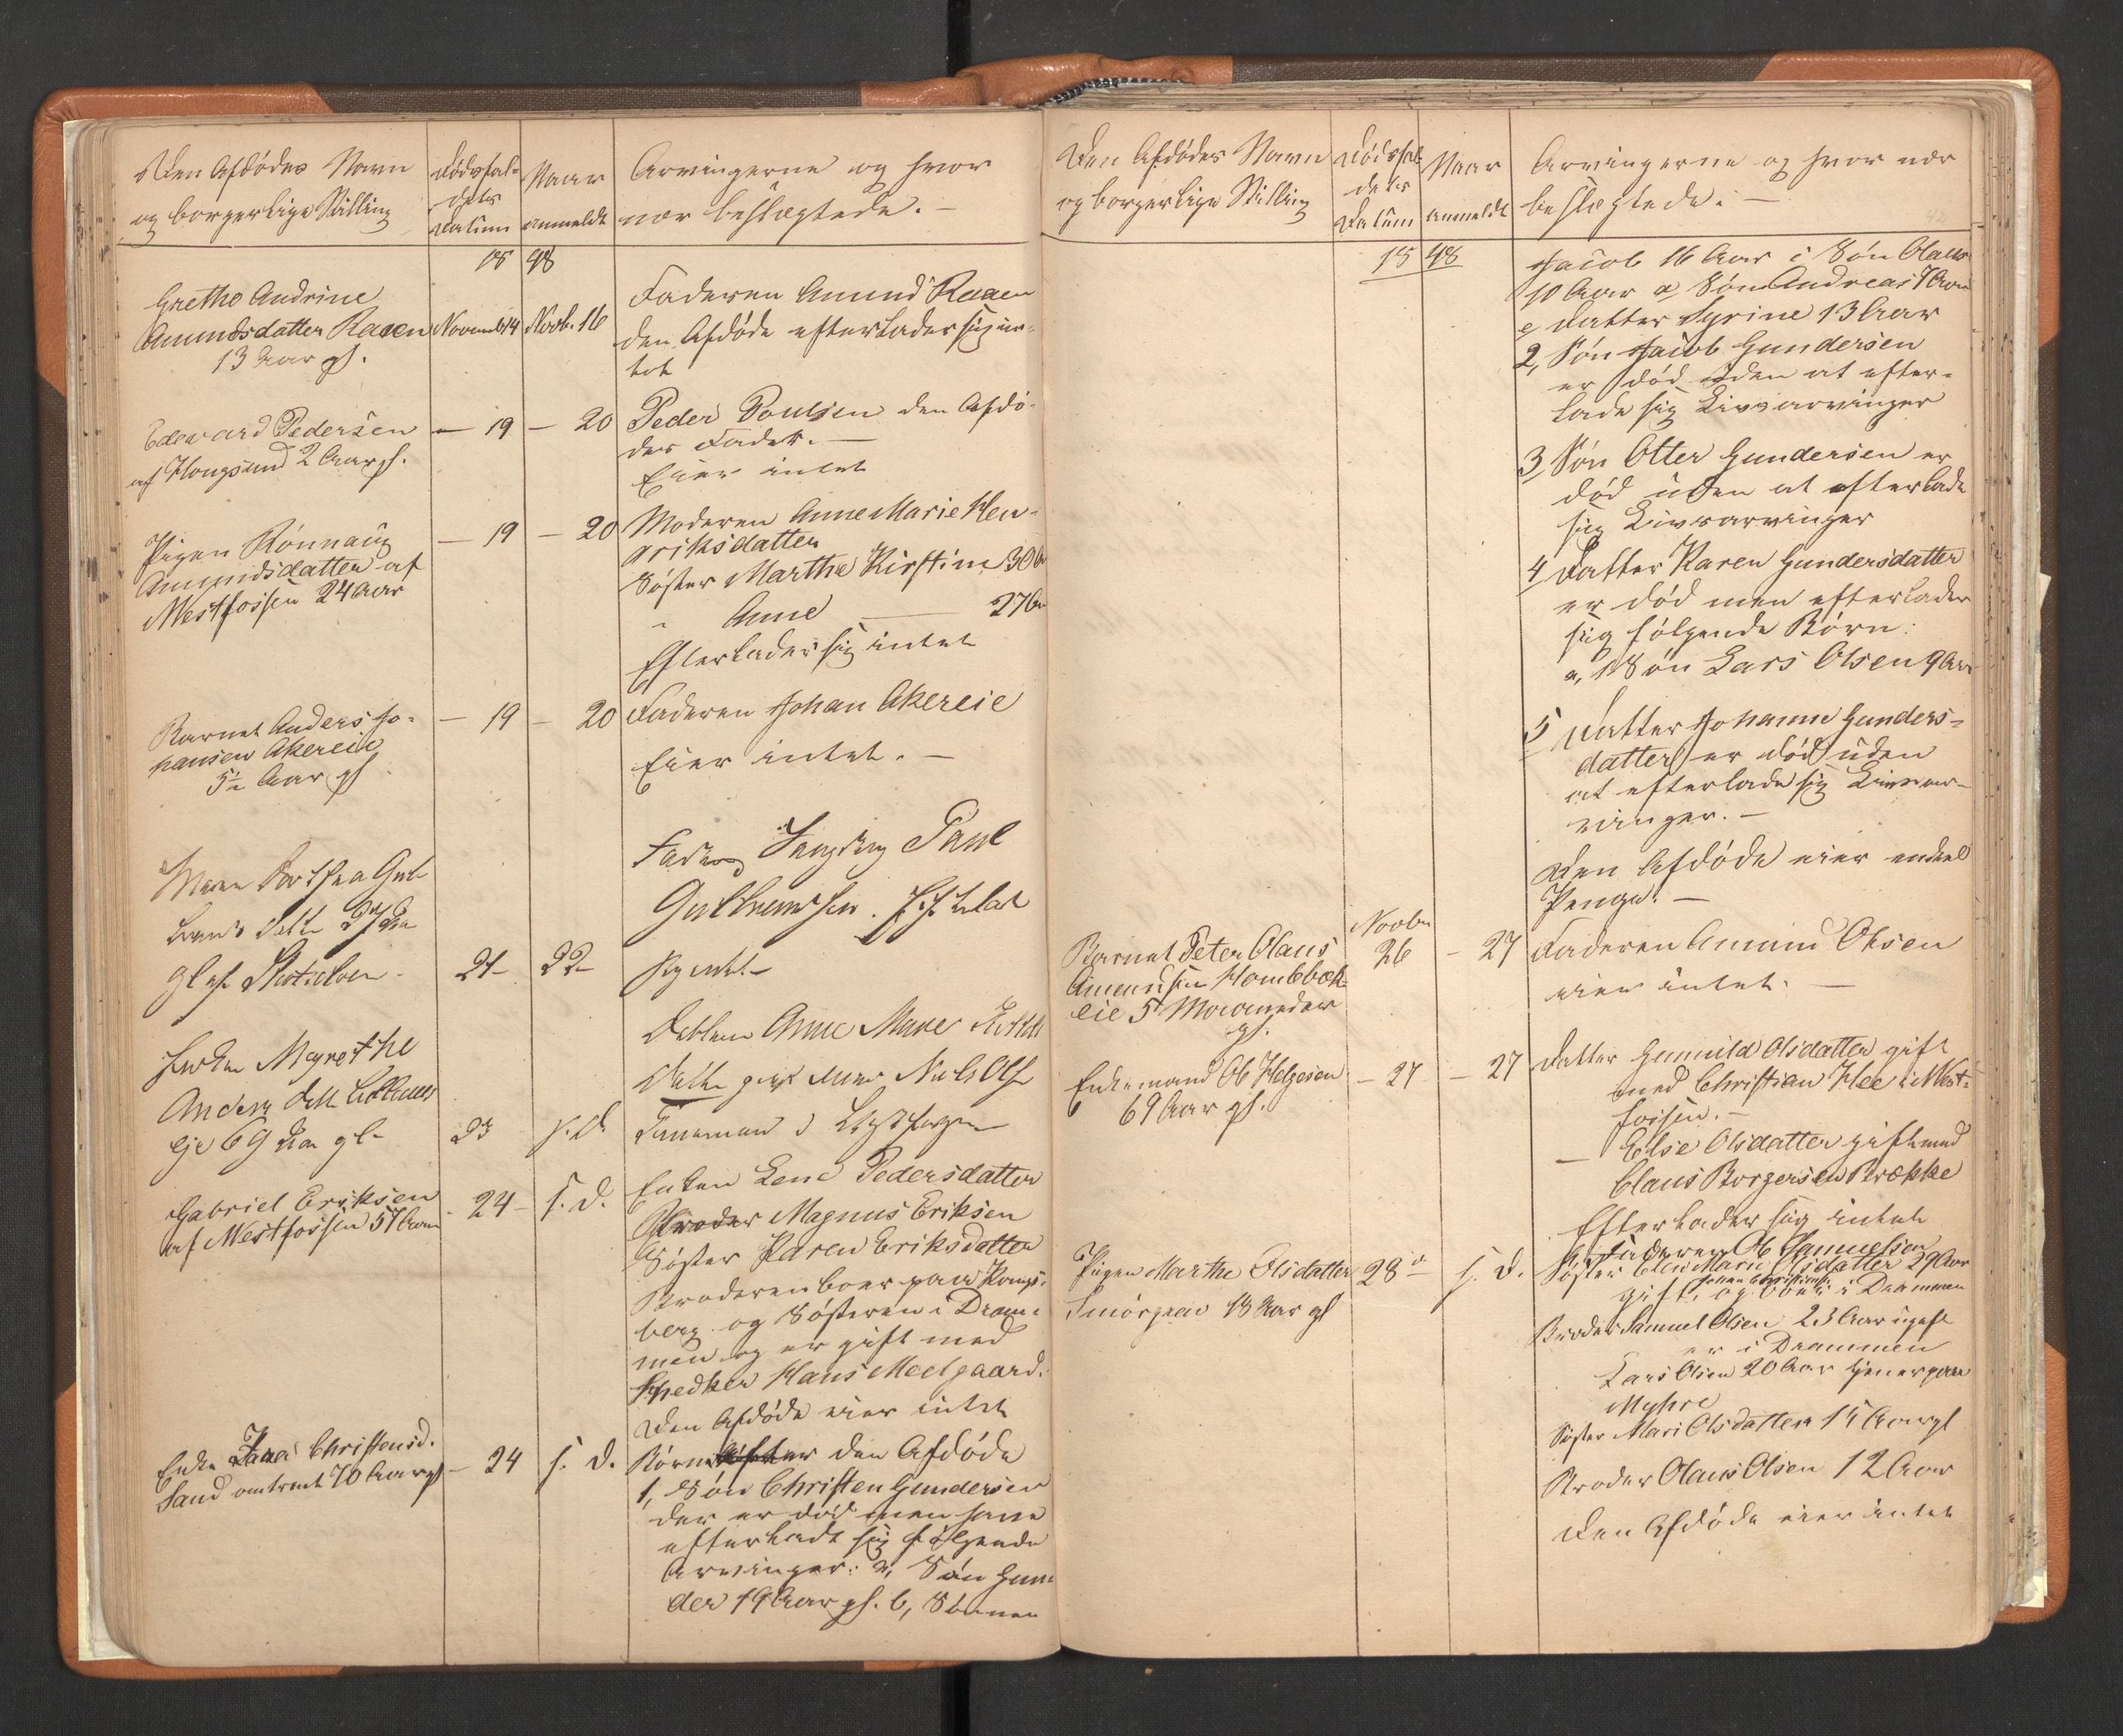 Den Afdødes Navn
og borgerlige Stilling
Dødsfal-
dets
Datum
Naar
anmeldt
Arvingerne og hvor
nær beslægtede. –
18 48
Grethe Andrine
Amundsdatter Raaen
13 Aar gl.
Novemb 14
Novb. 16
Faderen Amund Raaen
den Afdøde efterlader sig in-
tet
Edevard Pedersen
af Hougsund 2 Aar gl.
– 19
– 20
Peder Poulsen den Afdø-
des Fader. –
Eier intet
Pigen Rønnaug
Amundsdatter af
Westfossen 24 Aar
– 19
– 20
Moderen Anne Marie Hen-
driksdatter
Søster Marthe Kirstine 30
" Anne – 27
Efterlader sig intet
Barnet Anders Jo-
hansen Akereie
5½ Aar gl
– 19
– 20
Faderen Johan Akereie
Eier intet. –
Maren Dorthea Gul
brands datt 27 Aar
gl af Skotselven
21 –
22 –
Fader Paul
Gulbrandsen. Efterlad
sig intet –
Enken Magrethe
Anders datt
eje 69 Aar gl –
23
s. D.
Datteren Anne Marie
Datter gift med Niels Olsen
Gabriel Eriksen
af Westfossen 57 Aar
– 24 –
s. D.
Enken Lene Pedersdatter
Broder Magnus Eriksen
Søster Karen Eriksdatter
Broderen boer paa Kongs-
berg og Søsteren i Dram-
men og er gift med
Hans Meelgaard.
Den Afdøde eier intet
Enke Christensd.
Sand omtrent 70 Aar gl
– 24
s. D.
Børn efter den Afdøde
1, Søn Christen Gundersen
der er død men have
efterladt sig følgende
Arvinger: a, Søn Gun-
der 19 Aar gl. b, Sønnen
Den Afdødes Navn
og borgerlige Stilling
Dødsfal-
dets
Datum
Naar
anmeldt
Arvingerne og hvor nær
beslægtede. –
18 48
Jacob 16 Aar c Søn Olaus
10 Aar d, Søn Andreas 7 Aar
e Datter Syrine 13 Aar
2, Søn Jacob Gundersen
er død uden at efter-
lade sig Livsarvinger
3, Søn Otter Gundersen er
død uden at efterlade
sig Livsarvinger
4 Datter Karen Gundersdatter
er død men efterlader
sig følgende Børn:
a, 1 Søn Lars Olsen 9 Aar
5 Datter Johanne Gunders-
datter er død uden
at efterlade sig Livsar-
vinger. –
Den Afdøde eier endeel
Penge. –
Barnet Peter Olaus
Amundsen Hombbæk
eie 5 Maaneder
gl.
Novbr
26
– 27
Faderen Amund Olsen
eier intet. –
Enkemand Ole Helgesen
69 Aar gl.
– 27
– 27
Datter Gunnild Olsdatter gift
med Christian Hee i West-
fossen. –
– Else Olsdatter gift med
Claus Borgersen Brække
Efterlader sig intet
Pigen Marthe Olsdatter
Smørgrav 18 Aar gl
28 –
s. D.
Faderen Ole Samuelsen
Søster Elen Marie Olsdatter 29 Aar
gift, og boer i Drammen
Broder Samuel Olsen 23 Aar ugift
er i Drammen
Lars Olsen 20 Aar tjener paa
Myhre
Søster Mari Olsdatter 15 Aar gl
Broder Olaus Olsen 12 Aar
Den Afdøde eier intet